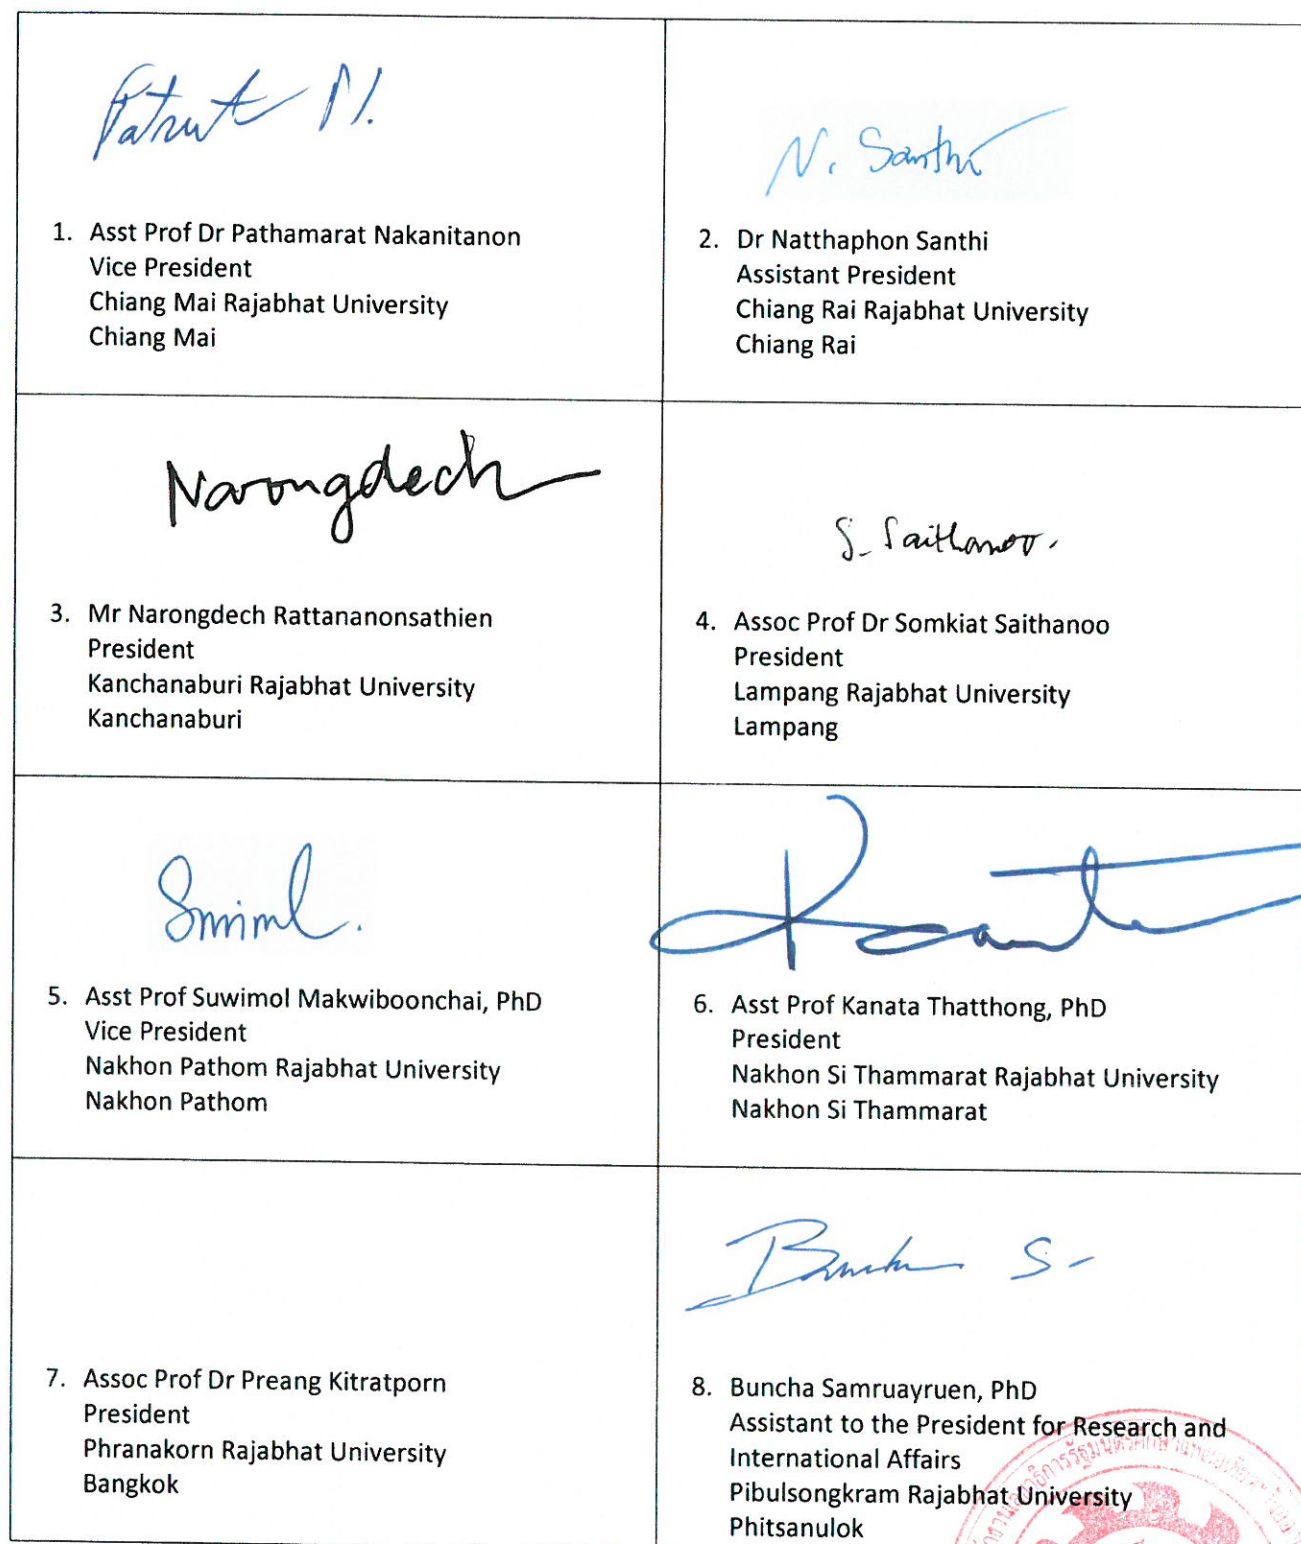 N. Santhi
1. Asst Prof Dr Pathamarat Nakanitanon
Vice President
Chiang Mai Rajabhat University
Chiang Mai
2. Dr Natthaphon Santhi
Assistant President
Chiang Rai Rajabhat University
Chiang Rai
Narongdech
S. Saithanoo.
3. Mr Narongdech Rattananonsathien
President
Kanchanaburi Rajabhat University
Kanchanaburi
4. Assoc Prof Dr Somkiat Saithanoo
President
Lampang Rajabhat University
Lampang
5. Asst Prof Suwimol Makwiboonchai, PhD
Vice President
Nakhon Pathom Rajabhat University
Nakhon Pathom
6. Asst Prof Kanata Thatthong, PhD
President
Nakhon Si Thammarat Rajabhat University
Nakhon Si Thammarat
7. Assoc Prof Dr Preang Kitratporn
President
Phranakorn Rajabhat University
Bangkok
8. Buncha Samruayruen, PhD
Assistant to the President for Research and
International Affairs
Pibulsongkram Rajabhat University
Phitsanulok